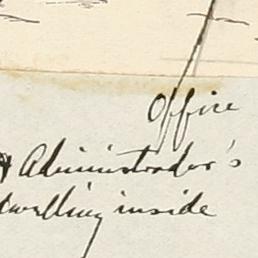 Office
Administrador's
dwelling inside